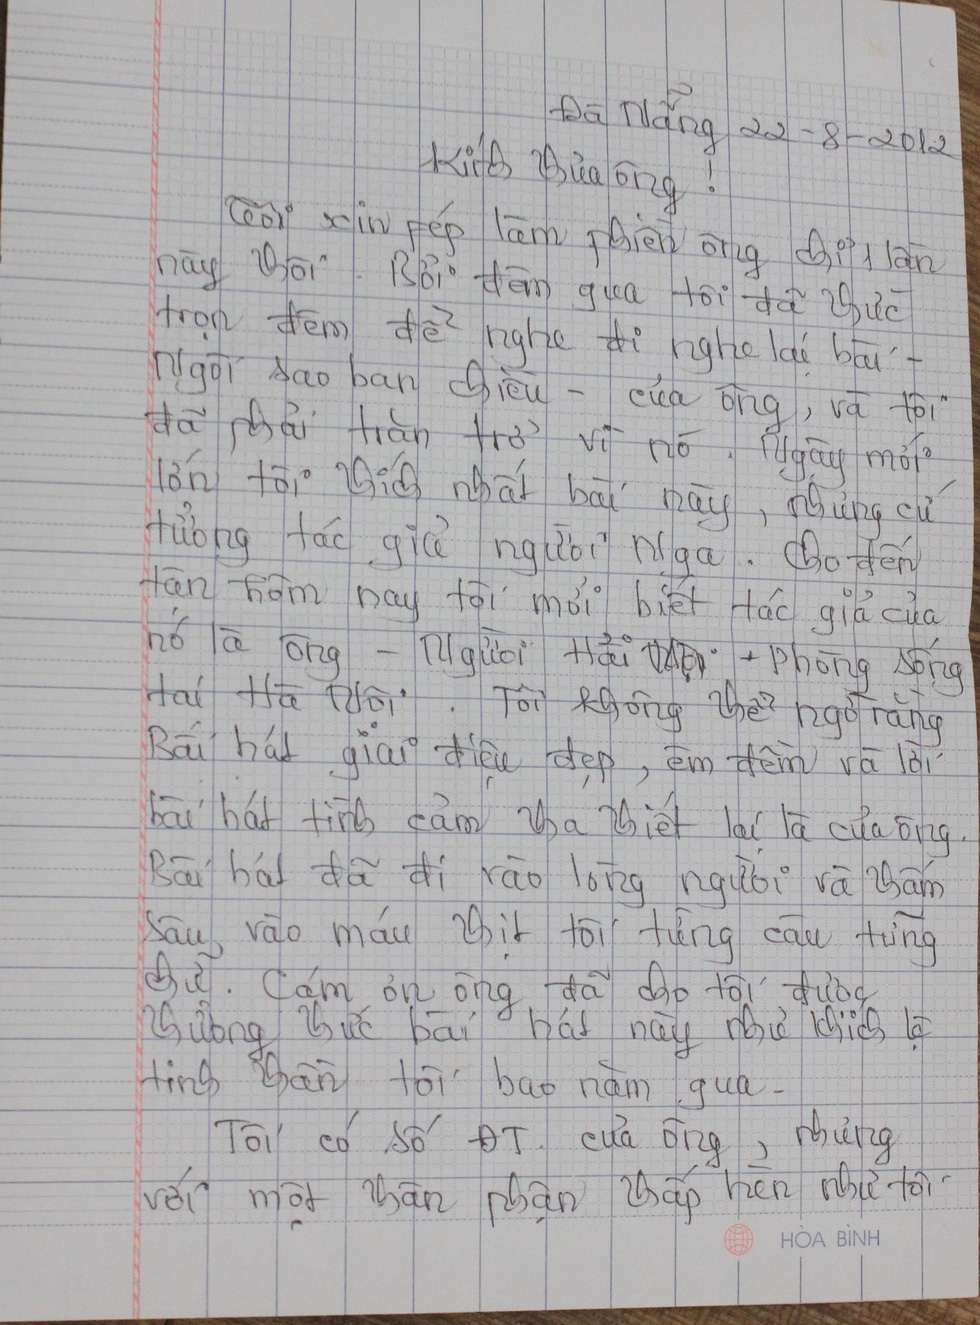 Đà Nẵng 22-8-2012
Kính thưa ông!
Tôi xin phép làm phiền ông chỉ 1 lần
này thôi. Bởi đêm qua tôi đã thức
trọn đêm để nghe đi nghe lại bài -
Ngôi sao ban chiều - của ông, và tôi
đã phải trăn trở vì nó. Ngày mới
lớn tôi thích nhất bài này, nhưng cứ
tưởng tác giả người Nga. Cho đến
tận hôm nay tôi mới biết tác giả của
nó là ông - Người Hải Phòng sống
tại Hà Nội. Tôi không thể ngờ rằng
Bài hát giai điệu đẹp, êm đềm và lời
bài hát tình cảm tha thiết lại là của ông.
Bài hát đã đi vào lòng người và thấm
sâu vào máu thịt tôi từng câu từng
chữ. Cám ơn ông đã cho tôi được
thưởng thức bài hát này như khích lệ
tinh thần tôi bao năm qua.
Tôi có số ĐT của ông, nhưng
với một thân phận thấp hèn như tôi
HÒA BÌNH